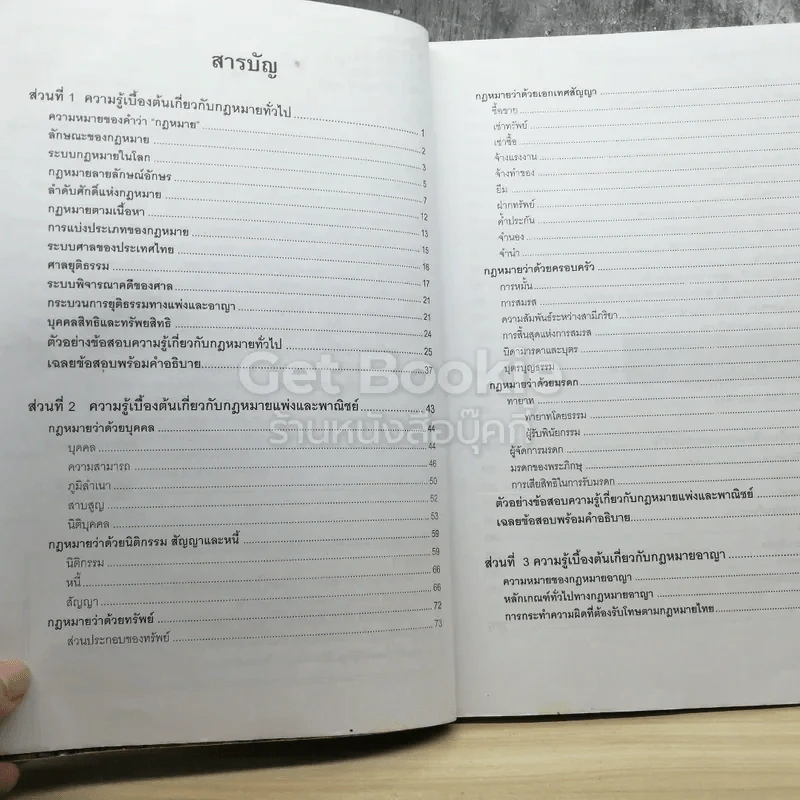 สารบัญ
ส่วนที่ 1 ความรู้เบื้องต้นเกี่ยวกับกฎหมายทั่วไป
ความหมายของคำว่า "กฎหมาย" 1
ลักษณะของกฎหมาย 2
ระบบกฎหมายในโลก 3
กฎหมายลายลักษณ์อักษร 5
ลำดับศักดิ์แห่งกฎหมาย 7
กฎหมายตามเนื้อหา 12
การแบ่งประเภทของกฎหมาย 13
ระบบศาลของประเทศไทย 15
ศาลยุติธรรม 16
ระบบพิจารณาคดีของศาล 17
กระบวนการยุติธรรมทางแพ่งและอาญา 21
บุคคลสิทธิและทรัพยสิทธิ 21
ตัวอย่างข้อสอบความรู้เกี่ยวกับกฎหมายทั่วไป 24
เฉลยข้อสอบพร้อมคำอธิบาย 25
37
ส่วนที่ 2 ความรู้เบื้องต้นเกี่ยวกับกฎหมายแพ่งและพาณิชย์ 43
กฎหมายว่าด้วยบุคคล 44
บุคคล 44
ความสามารถ 46
ภูมิลำเนา 50
สาบสูญ 52
นิติบุคคล 53
กฎหมายว่าด้วยนิติกรรม สัญญาและหนี้ 59
นิติกรรม 59
หนี้ 66
สัญญา 66
กฎหมายว่าด้วยทรัพย์ 72
ส่วนประกอบของทรัพย์ 73
กฎหมายว่าด้วยเอกเทศสัญญา
ซื้อขาย
เช่าทรัพย์
เช่าซื้อ
จ้างแรงงาน
จ้างทำของ
ยืม
ฝากทรัพย์
ค้ำประกัน
จำนอง
จำนำ
กฎหมายว่าด้วยครอบครัว
การหมั้น
การสมรส
ความสัมพันธ์ระหว่างสามีภริยา
การสิ้นสุดแห่งการสมรส
บิดามารดาและบุตร
บุตรบุญธรรม
กฎหมายว่าด้วยมรดก
ทายาท
ทายาทโดยธรรม
ผู้รับพินัยกรรม
ผู้จัดการมรดก
มรดกของพระภิกษุ
การเสียสิทธิในการรับมรดก
ตัวอย่างข้อสอบความรู้เกี่ยวกับกฎหมายแพ่งและพาณิชย์
เฉลยข้อสอบพร้อมคำอธิบาย
ส่วนที่ 3 ความรู้เบื้องต้นเกี่ยวกับกฎหมายอาญา
ความหมายของกฎหมายอาญา
หลักเกณฑ์ทั่วไปทางกฎหมายอาญา
การกระทำความผิดที่ต้องรับโทษตามกฎหมายไทย
Get Bookie
ร้านหนังสือบุ๊คกี้